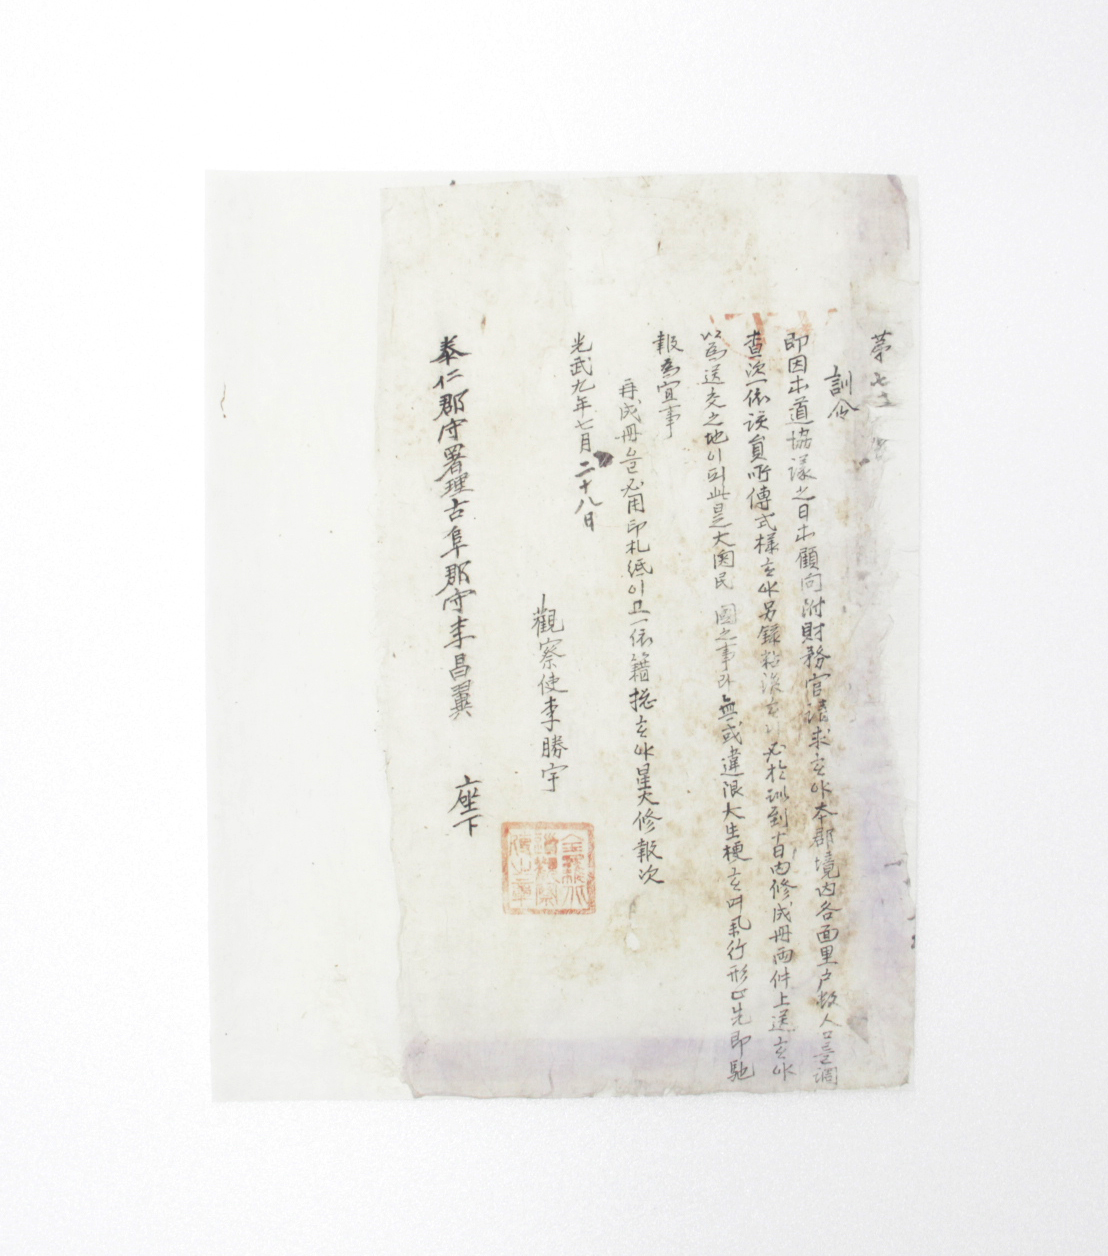 第七
訓令
卽因本道協議之日本顧問附財務官請求하야本郡境內各面里戶數人口를調
查次一依該員所傳式樣하야另錄粘後하니必於訓到十日內修成冊兩件上送하야
以爲送交之地이되此是大關民 國之事라無或違限大生梗하며擧行形止先卽馳
報爲宜事
再成冊은必用印札紙이고一依籍摠하야星火修報次
光武九年七月二十八日
觀察使李勝宇
泰仁郡守署理古阜郡守李昌翼 座下